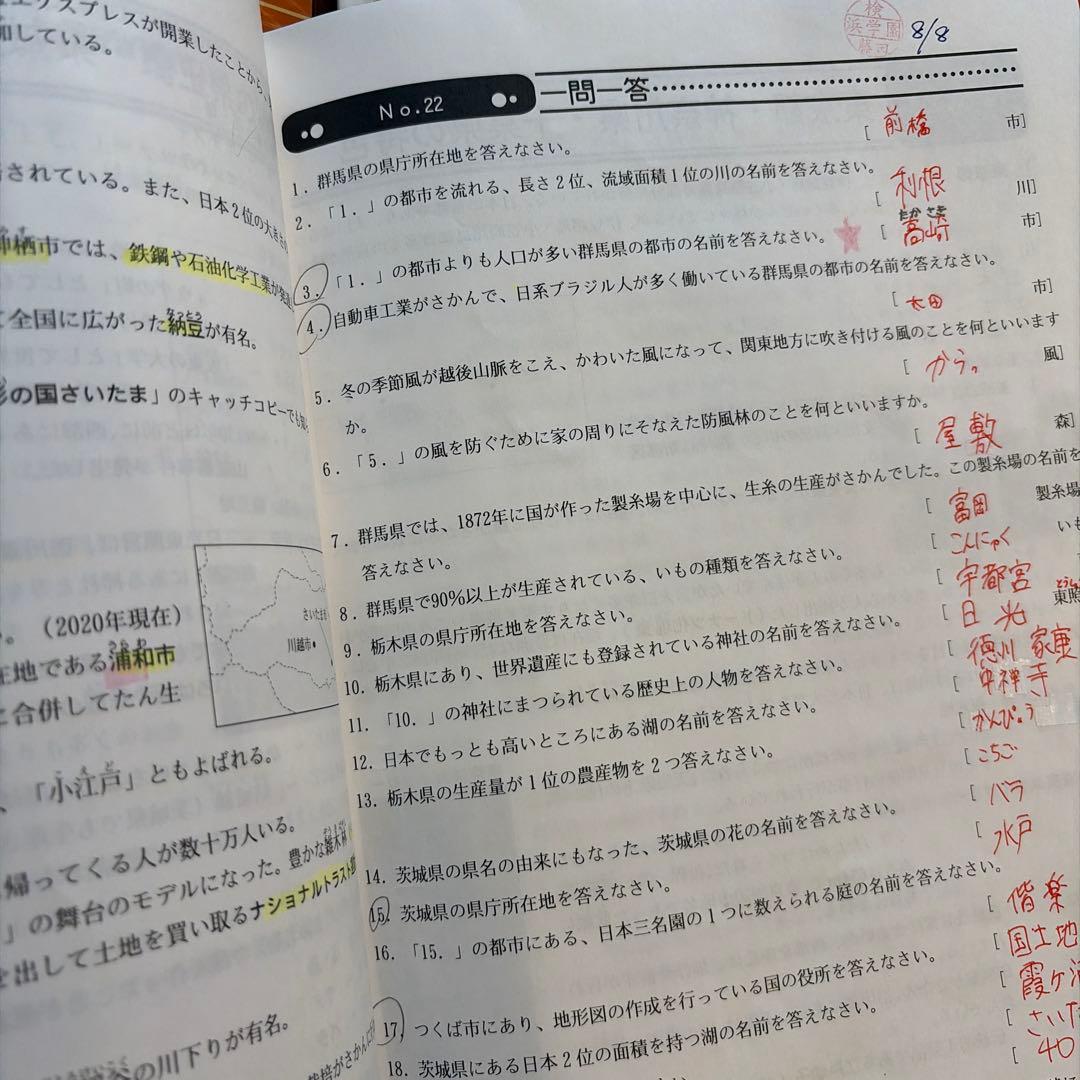 エクスプレスが開業したことから、
加している。
されている。また、日本2位の大きさの
神栖市では、鉄鋼や石油化学工業が発達
て全国に広がった納豆が有名。
なっとう
彩の国さいたま」のキャッチコピーでも知ら
。(2020年現在)
在地である浦和市
うらわ
と合併してたん生
さいたま
川越市
、「小江戸」ともよばれる。
こえど
帰ってくる人が数十万人いる。
」の舞台のモデルになった。豊かな雑木林
を出して土地を買い取るナショナルトラスト
の川下りが有名。
栽培がさかんに行
検
浜学園
8/8
No.22
一問一答
1.群馬県の県庁所在地を答えなさい。
[前橋 市]
2.「1.」の都市を流れる、長さ2位、流域面積1位の川の名前を答えなさい。
[利根 川]
3.「1.」の都市よりも人口が多い群馬県の都市の名前を答えなさい。
たかさき
[高崎 市]
4.自動車工業がさかんで、日系ブラジル人が多く働いている群馬県の都市の名前を答えなさい。
[太田 市]
5.冬の季節風が越後山脈をこえ、かわいた風になって、関東地方に吹き付ける風のことを何といいます
か。
[からっ 風]
6.「5.」の風を防ぐために家の周りにそなえた防風林のことを何といいますか。
[屋敷 森]
7.群馬県では、1872年に国が作った製糸場を中心に、生糸の生産がさかんでした。この製糸場の名前を
答えなさい。
[富岡 製糸場
8.群馬県で90%以上が生産されている、いもの種類を答えなさい。
[こんにゃく いも
9.栃木県の県庁所在地を答えなさい。
[宇都宮
10.栃木県にあり、世界遺産にも登録されている神社の名前を答えなさい。
[日光 東照
11.「10.」の神社にまつられている歴史上の人物を答えなさい。
[徳川 家康
12.日本でもっとも高いところにある湖の名前を答えなさい。
[中禅寺
13.栃木県の生産量が1位の農産物を2つ答えなさい。
[かんぴょう
[こちご
14.茨城県の県名の由来にもなった、茨城県の花の名前を答えなさい。
[バラ
15.茨城県の県庁所在地を答えなさい。
[水戸
16.「15.」の都市にある、日本三名園の1つに数えられる庭の名前を答えなさい。
[偕楽
17.つくば市にあり、地形図の作成を行っている国の役所を答えなさい。
[国土地
18.茨城県にある日本2位の面積を持つ湖の名前を答えなさい。
[霞ヶ浦
[さいた
[40